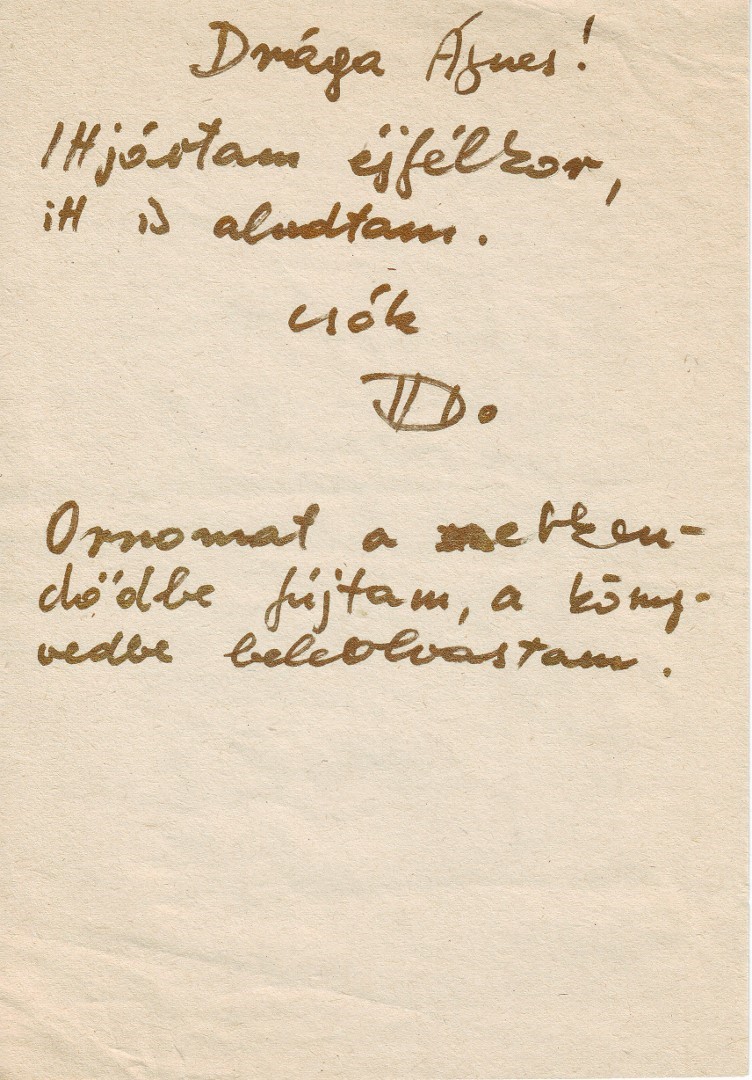 Drága Ágnes!
Itt jártam éjfélkor,
itt is aludtam.
csók
D.
Orromat a zsebken-
dődbe fújtam, a köny-
vedbe beleolvastam.